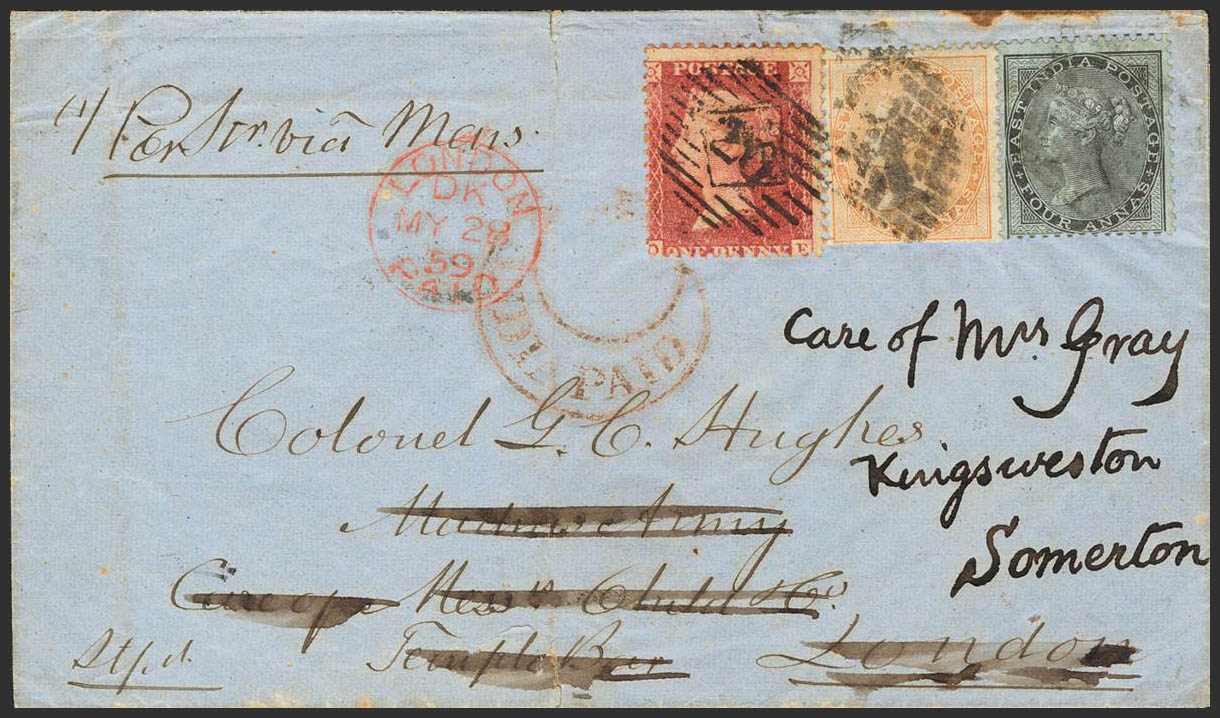 Per Str. via Mars.
LONDON
DK
MY 28
59
POSTAGE
O ONE PENNY E
EAST INDIA POSTAGE
FOUR ANNAS
INDIA PAID
Care of Mrs Gray
Kingsweston
Somerton
Colonel G. C. Hughes
Madras Army
Care of Messrs Child & Co
Temple Bar London
Stpd.